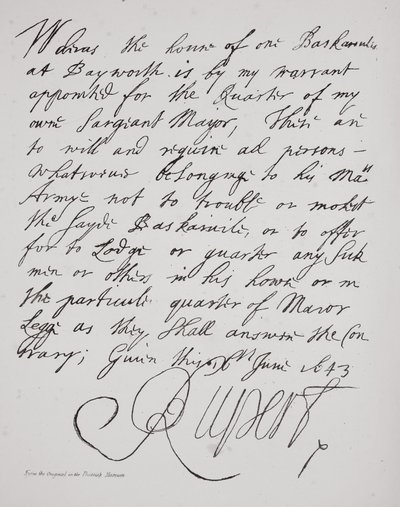 Wheras the howse of one Baskarvile
at Bayworth is by my warrant
appointed for the Quarter of my
owne Sargiant Mayor, These are
to will and require all persons –
whatsoever belonginge to his Ma:tis
Armye not to trouble or molest
the sayde Baskarvile, or to offer
for to Lodge or quarter any sick
men or others in his howse or in
the particuler quarter of Maior
Legge as they shall answere the Con
trary; Given this, June 1643
Rupert
From the Original in the British Museum